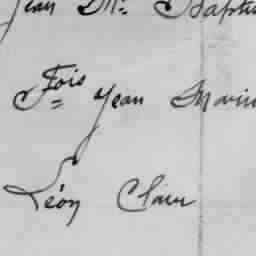 Jean Bte Baptis
Fois Jean Marie
Léon Clair